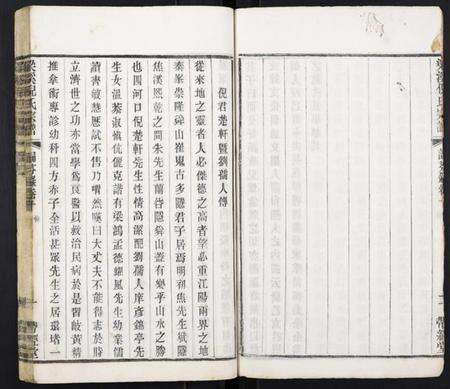 倪君楚軒暨劉孺人傳
從來地之靈者人必傑德之高者望必重江陽兩界之地
秦峯崇隆舜山崔嵬古多隱君子居焉明初焦先生嶽隱
焦溪熙乾之間朱先生蘭谷隱舜山蓋有樂乎山水之勝
也四河口倪楚軒先生性情高潔配劉孺人庠彥鎬亭先
生女溫慕淑慎伉儷克諧有梁鴻孟德耀風先生幼業儒
讀書敏慧歷試不售乃喟然嘆曰大丈夫不能得志於時
立濟世之功亦當學爲良醫以救治民病於是習岐黃精
推拿術專診幼科四方赤子全活甚眾先生之居環堵一